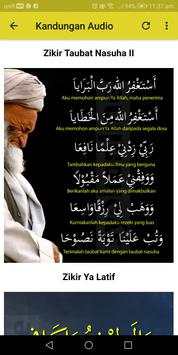 Kandungan Audio
Zikir Taubat Nasuha II
أَسْتَغْفِرُ اللهَ رَبَّ الْبَرَايَا
Aku memohon ampun Ya Allah, maha penerima
أَسْتَغْفِرُ اللهَ مِنَ الْخَطَايَا
Aku memohon ampun Ya Allah daripada segala dosa
رَبِّي زِدْنِي عِلْمًا نَافِعًا
Tambahkan kepadaku ilmu yang berguna
وَوَفِّقْنِي عَمَلًا مَقْبُوْلًا
Berikanlah aku amalan yang dimakbulkan
وَوَهِّبْ لِي رِزْقًا وَاسِعًا
Kurniakanlah kepadaku rezeki yang meluas
وَتُبْ عَلَيْنَا تَوْبَةً نَصُوْحَا
Dan terimalah taubat kami dengan taubat nasuha
Zikir Ya Latif